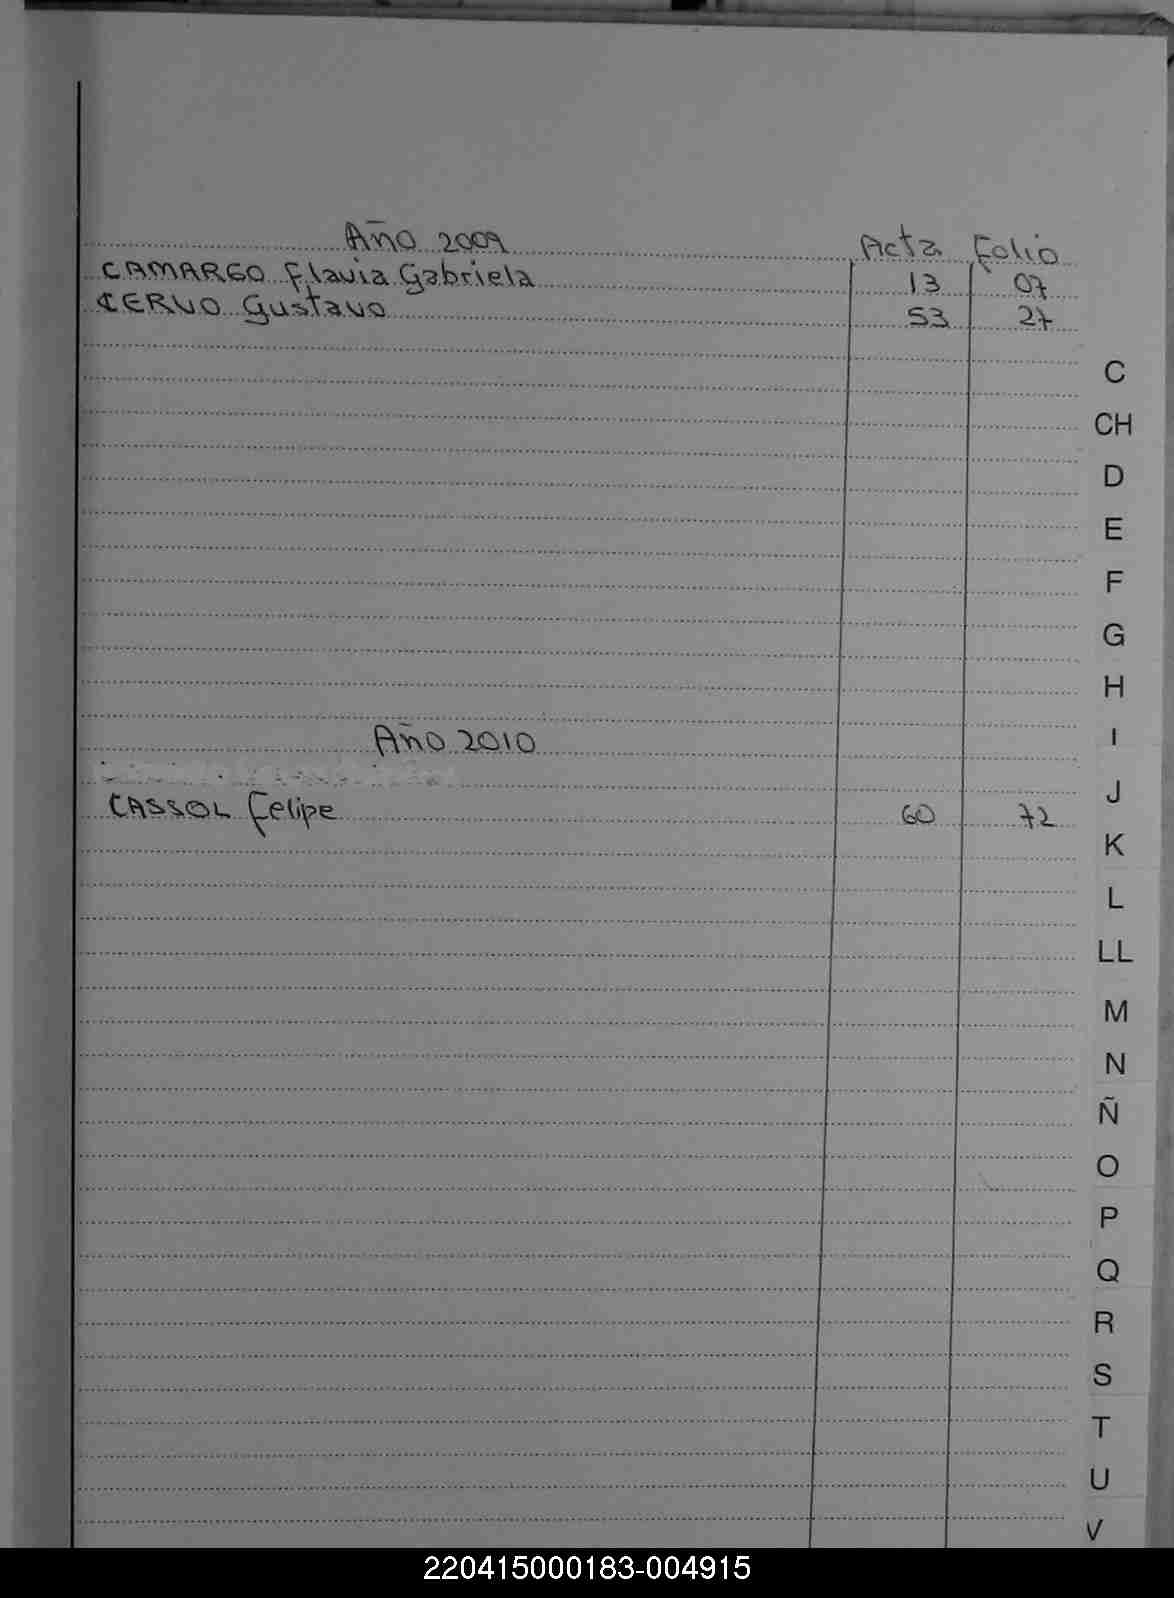 Año 2009 Acta Folio
CAMARGO Flavia Gabriela 13 07
CERVO Gustavo 53 27
C
CH
D
E
F
G
H
Año 2010
I
J
CASSOL Felipe 60 72
K
L
LL
M
N
Ñ
O
P
Q
R
S
T
U
V
220415000183-004915